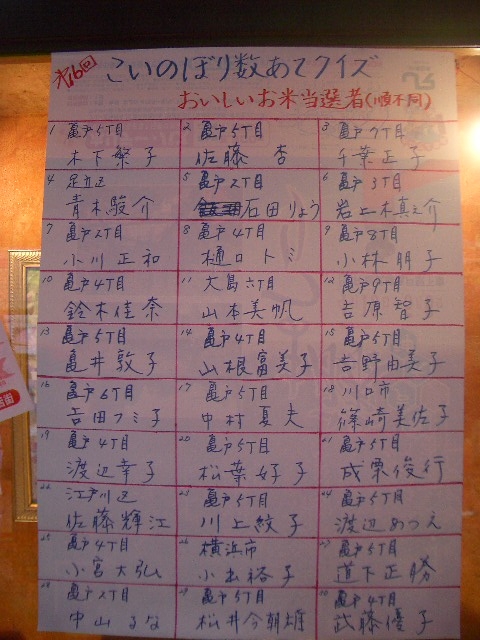 第16回 こいのぼり数あてクイズ
おいしいお米当選者(順不同)
1 亀戸5丁目
木下繁子
2 亀戸5丁目
佐藤 杏
3 亀戸7丁目
千葉正子
4 足立区
青木駿介
5 亀戸2丁目
石田りょう
6 亀戸3丁目
岩上木真之介
7 亀戸2丁目
小川正和
8 亀戸4丁目
樋口トミ
9 亀戸8丁目
小林朋子
10 亀戸4丁目
鈴木佳奈
11 大島六丁目
山本美帆
12 亀戸9丁目
吉原智子
13 亀戸5丁目
亀井敦子
14 亀戸4丁目
山根富美子
15 亀戸5丁目
吉野由美子
16 亀戸6丁目
吉田フミ子
17 亀戸5丁目
中村夏夫
18 川口市
篠崎美佐子
19 亀戸4丁目
渡辺幸子
20 亀戸5丁目
松葉好子
21 亀戸5丁目
成栗俊行
22 江戸川区
佐藤輝江
23 亀戸5丁目
川上紋子
24 亀戸5丁目
渡辺めつえ
25 亀戸4丁目
小宮大弘
26 横浜市
小出裕子
27 亀戸5丁目
道下正勝
28 亀戸2丁目
中山るな
29 亀戸5丁目
松井今朝雄
30 亀戸4丁目
武藤優子